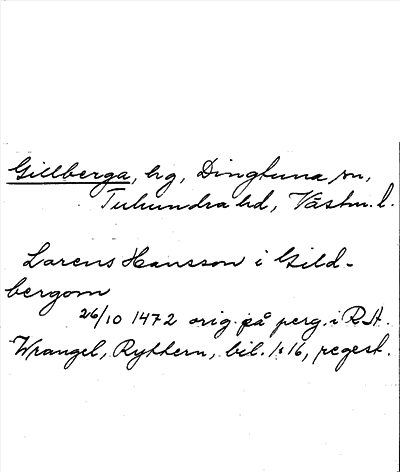 Gillberga, hg, Dingtuna sn,
Tuhundra hd, Västm. l.
Larens Hansson i Gild-
bergom
26/10 1472 orig. på perg. i RA.
Wrangel, Ryttern, bil. 1:16, regest.